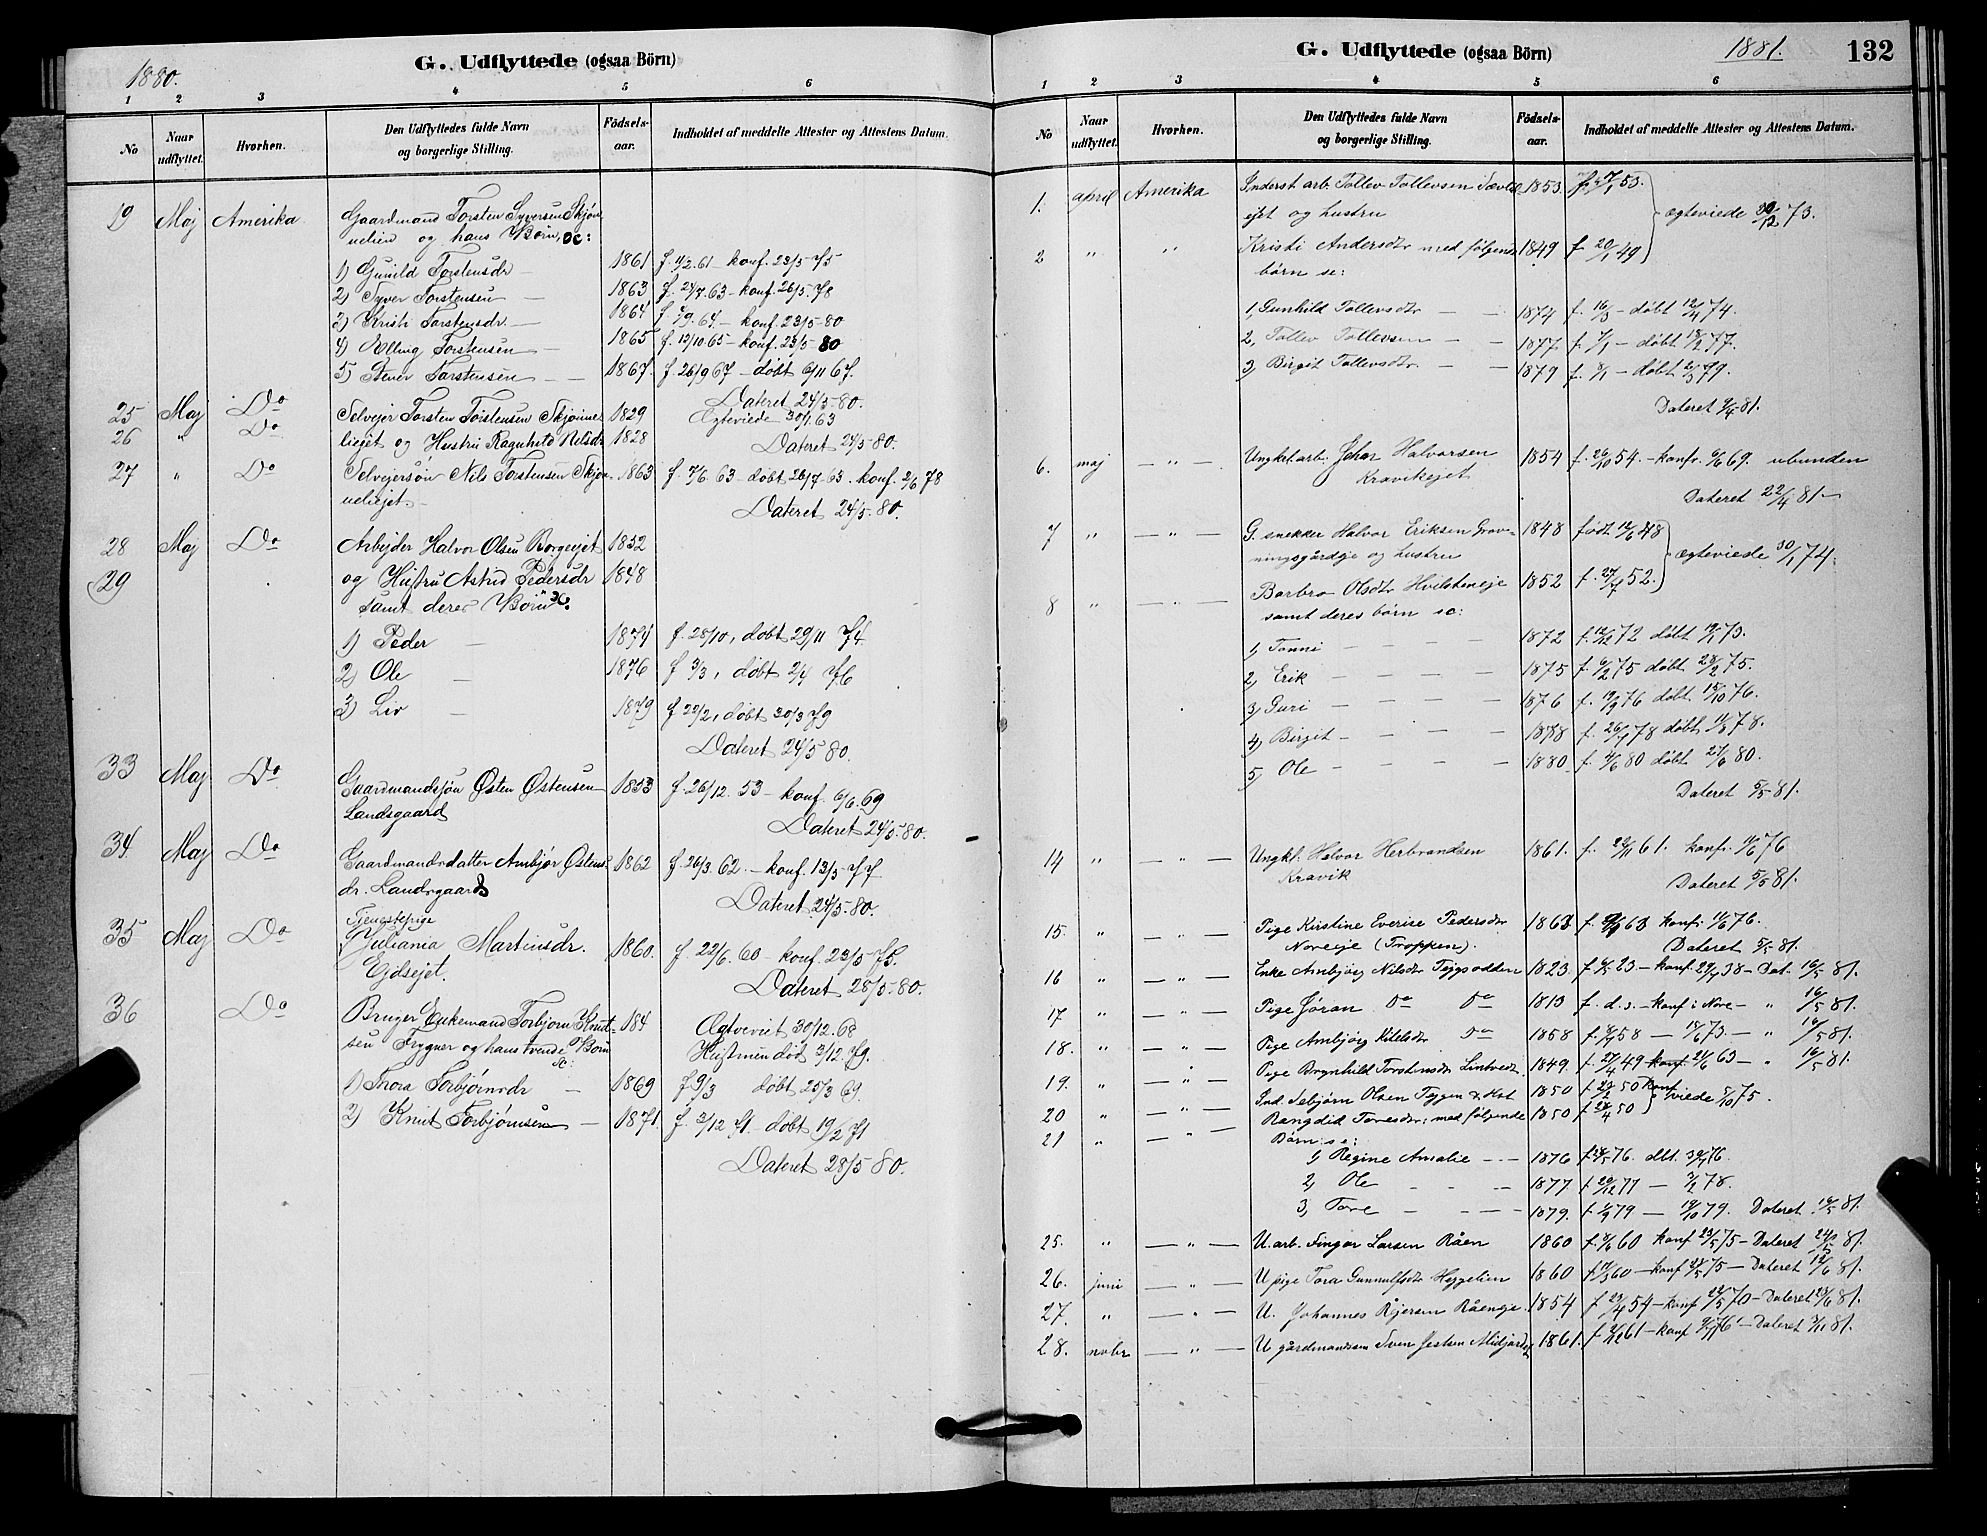 1880.
G. Udflyttede (ogsaa Börn)
1 2 3 4 5 6
No
Naar udflyttet.
Hvorhen.
Den Udflyttedes fulde Navn og borgerlige Stilling.
Födsels-aar.
Indholdet af meddelte Attester og Attestens Datum.
19 Maj Amerika Gaardmand Torsten Syversen Skjøn
uelien og hans Børn, sc:
1) Gunild Torstensdr — 1861 f. 11/2. 61 — konf. 23/5 75
2) Syver Torstensen — 1863 f. 24/7. 63 — konf. 26/5. 78
3) Kristi Torstensdr. — 1864 f. 7/9. 64. — konf. 23/5-80
4) Elling Torstensen — 1865 f. 13/10. 65 — konf. 23/5-80
5) Stener Torstensen — 1867. f 26/9 67 — døbt 6/11 67.
Dateret 24/5-80.
25 Maj Do Selvejer Torsten Torstensen Skjønne 1829 Egteviede 30/1. 63
26 " Do liejet og Hustru Ragnhild Nilsdr 1828 Dateret 24/5-80.
27 " Do Selvejersøn Nils Torstensen Skjøn 1863 f. 7/6. 63 — døbt 26/7-63. konf. 2/6 78
ueliejet. — Dateret 24/5-80.
28 Maj Do Arbejder Halvor Olsen Borgeejet 1852
29 og Hustru Astrid Pedersdr 1848
samt deres Børn sc:
1) Peder — 1874 f. 28/10, døbt 29/11 74.
2) Ole — 1876 f 3/3, døbt 2/4 76
3) Liv — 1879 f 22/2, døbt 30/3 79
Dateret 24/5-80.
33 Maj Do Gaardmandssøn Østen Østensen 1853 f. 26/12. 53 — konf. 6/6. 69
Landsgaard Dateret 24/5-80.
34 Maj Do Gaardmandsdatter Ambjør Østens 1862 f. 26/3. 62. — konf. 13/5-77
dr. Landsgaard Dateret 24/5-80.
35 Maj Do Tjenestepige
Juliania Martinsdr. 1860. f 22/6. 60 — konf. 23/5 75.
Eidsejet. Dateret 28/5-80.
36 Do Bruger Enkemand Torbjørn Knut 184 Ægteviet 30/12. 68
sen Frygner og hans tvende Børn Hustruen død 3/12. 79.
sc:
1) Thora Torbjørnsdr — 1869 f 9/3 døbt 25/3 69.
2) Knut Torbjørnsen — 1871. f. 3/12 71. døbt 19/2 71
Dateret 28/5 80.
G. Udflyttede (ogsaa Börn)
1881.
132
1 2 3 4 5 6
No
Naar udflyttet.
Hvorhen.
Den Udflyttedes fulde Navn og borgerlige Stilling.
Födsels-aar.
Indholdet af meddelte Attester og Attestens Datum.
1. april Amerika Inderst arb. Tollev Tollevsen 1853 53.
ejet og hustru ægteviede 73.
2 " " Kristi Andersdtr med følgende 1849 f 20/1 49
børn sc:
1, Gunhild Tollevsdtr — — 1874 f. 16/3 — døbt 12/4 74.
2, Tollev Tollevsen — — 1877 f. 7/1 — døbt 18/2 77.
3, Birgit Tollevsdtr — — 1879 f. 9/1 — døbt 2/3 79.
Dateret 9/4 81.
6. maj — " — Ungkarl arb. Johan Halvorsen 1854 f. 26/10 54. — konfr. 6/6 69. ubunden
Kravikejet Dateret 22/4 81 —
7 " — " — G. snekker Halvor Eriksen Grov- 1848 født 12/6 48
ningsgårdeje og hustru ægteviede 30/1 74.
8 " — " — Barbro Olsdtr Hvilsteneje 1852 f. 27/7 52.
samt deres børn sc:
1, Tonni — — — 1872 f. 12/12 72 døbt 19/1 73.
2, Erik — — — 1875 f. 6/2 75 døbt 28/2 75.
3, Guri — — — 1876 f. 19/9 76 døbt 15/10 76.
4, Birgit — — — 1878 f. 26/1 78 døbt 11/3 78.
5, Ole — — — 1880 f. 4/6 80 døbt 27/6 80.
Dateret 5/5 81.
14 " — " — Ungkl. Halvor Herbrandsen 1861. f. 22/11 61. konfr. 11/6 76
Kravik Dateret 5/5 81.
15. " — " — Pige Kirstine Everise Pedersdtr 1863 f. 63 konfr. 11/6 76.
Noreeje (Troppen). Dateret 5/5 81.
16 " — " — Enke Ambjørg Nilsdtr Tejgsodden 1823. f 23 — konf. 38 — Dat. 16/5 81.
17 " — " — Pige Jøran Do Do 1813 f. d. s. — konf i Nore — " 16/5 81.
18. " — " — Pige Ambjørg Kittilsdtr Do 1858 f. 58 — 73 — " 16/5 81.
19. " — " — Pige Brynhild Torstensdtr 1849. f. 27/4 49 konf. 21/6 63 — " 16/5 81.
20 " — " — Ind. Sebjørn Olsen Tyggen 1850 f. 50 viede 5/10 75.
21 " — " — Rangdid Toresdtr: med følgende 1850 f. 50
Børn: sc:
1, Regine Amalie — — 1876 f. 76. dbt. 76.
2, Ole — — — 1877 f. 29/12 77 — 78.
3, Tore — — — 1879. f. 79 — 19/10 79. Dateret 16/5 81.
25. " — " — U. arb. Fingar Larsen Råen 1860 f. 8/6 60 konf 23/5 75 — Dateret 81.
26. juni — " — U pige Tora Gunnulfsdtr Heggelien 1860 f. 60 — konf 23/5 75 — Dateret 81.
27. " — " — U. Johannes Råensje 1854 f 23/4 54 — konf 70 — Dateret 81.
28. nvbr — " — U gårdmandssøn Sven Midjordet 1861. f. 61 — konf 76 — Dateret 81.